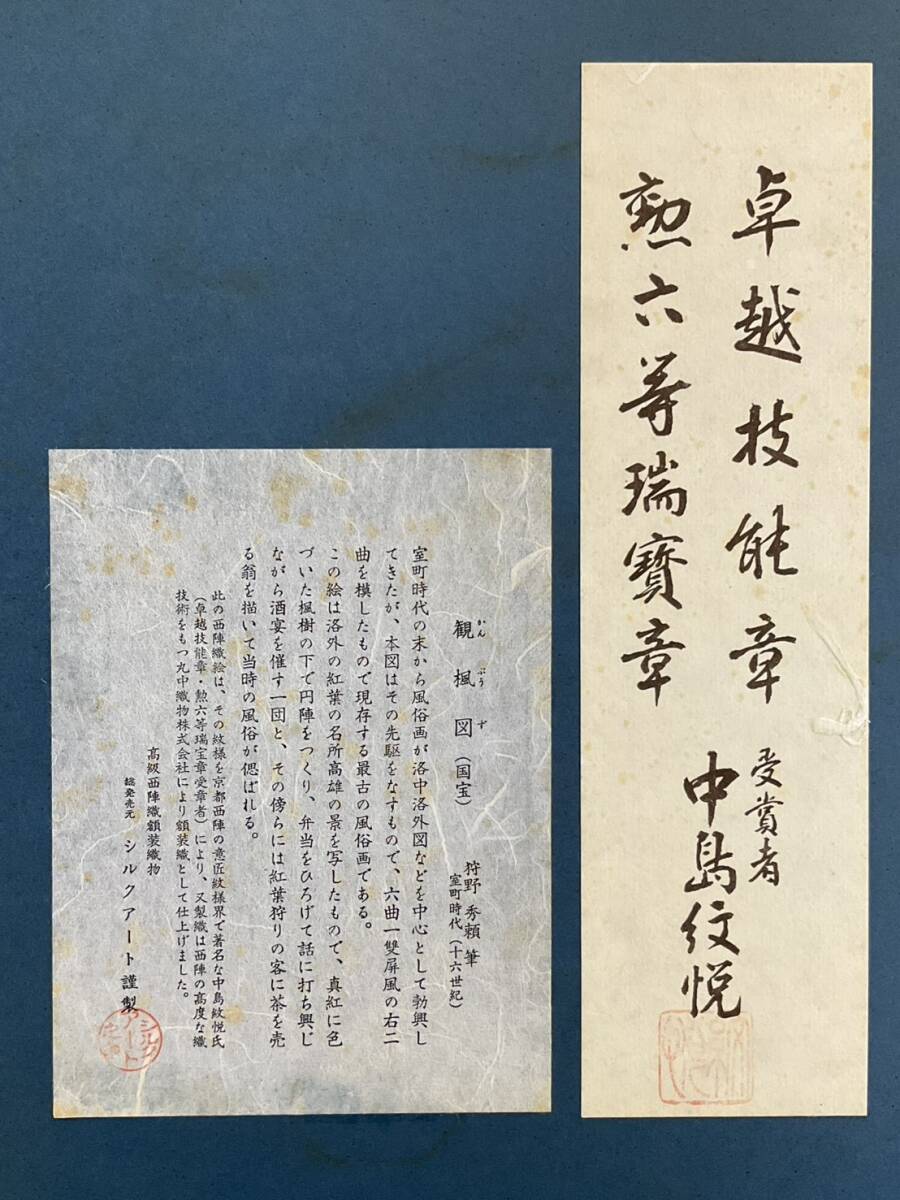 卓越技能章
勲六等瑞寶章
受賞者
中島紋悦
観楓図(国宝)
かんぷうず
狩野秀頼筆
室町時代(十六世紀)
室町時代の末から風俗画が洛中洛外図などを中心として勃興し
てきたが、本図はその先駆をなすもので、六曲一雙屏風の右二
曲を模したもので現存する最古の風俗画である。
この絵は洛外の紅葉の名所高雄の景を写したもので、真紅に色
づいた楓樹の下で円陣をつくり、弁当をひろげて話に打ち興じ
ながら酒宴を催す一団と、その傍らには紅葉狩りの客に茶を売
る翁を描いて当時の風俗が偲ばれる。
此の西陣織絵は、その紋様を京都西陣の意匠紋様界で著名な中島紋悦氏
(卓越技能章・勲六等瑞宝章受章者)により、又製織は西陣の高度な織
技術をもつ丸中織物株式会社により額装織として仕上げました。
高級西陣織額装織物
総発売元 シルクアート謹製